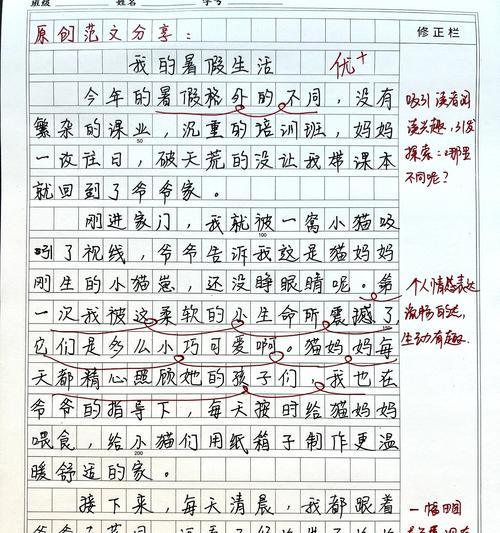 班级 姓名 学号
原创范文分享：
修正栏
我的暑假生活 优+
今年的暑假格外的不同，没有
繁杂的课业，沉重的培训班，妈妈
50
一改往日，破天荒的没让我带课本
就回到了爷爷家。
吸引读者阅
读兴趣，引发
探索：哪里
不同呢？
刚进家门，我就被一窝小猫吸
100
引了视线，爷爷告诉我这是猫妈妈
刚生的小猫崽，还没睁眼睛呢。第
一次我被这柔软的小生命所震撼了，
150
它们是多么小巧可爱啊。猫妈妈每
天都精心照顾她的孩子们，我也在
爷爷的指导下，每天按时给猫妈妈
喂食，给小猫们用纸箱子制作更温
200
暖舒适的家。
个人情感表达
流畅自然，
生动有趣。
接下来，每天清晨，我都跟着
一幅田园